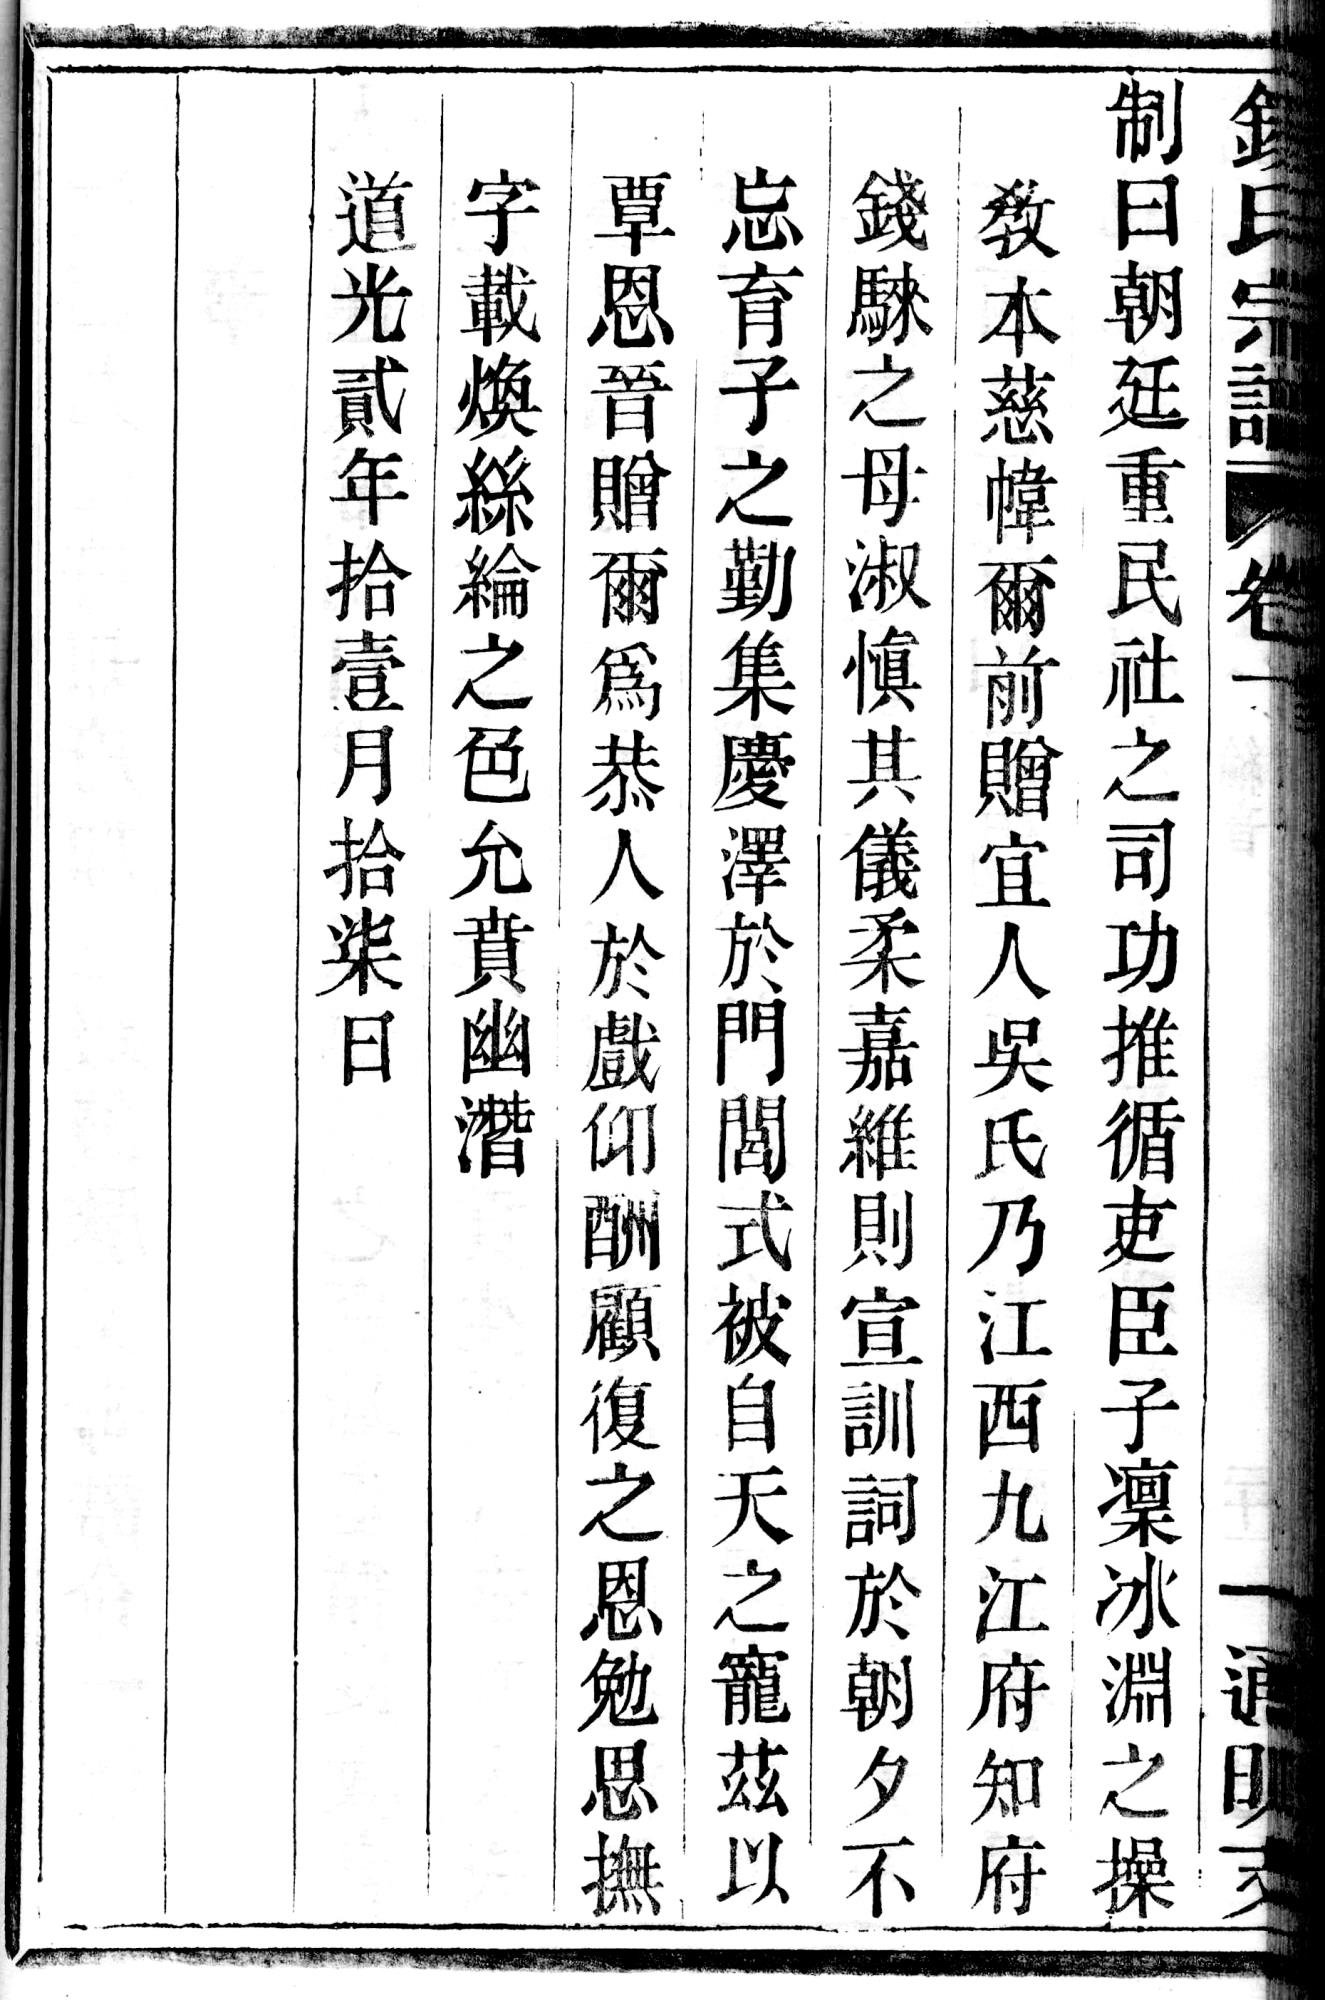 錢氏宗譜 卷一 通明支
制曰朝廷重民社之司功推循吏臣子凜冰淵之操
教本慈幃爾前贈宜人吳氏乃江西九江府知府
錢駷之母淑慎其儀柔嘉維則宣訓詞於朝夕不
忘育子之勤集慶澤於門閭式被自天之寵茲以
覃恩晉贈爾為恭人於戲仰酬顧復之恩勉思撫
字載煥絲綸之色允賁幽潛
道光貳年拾壹月拾柒日